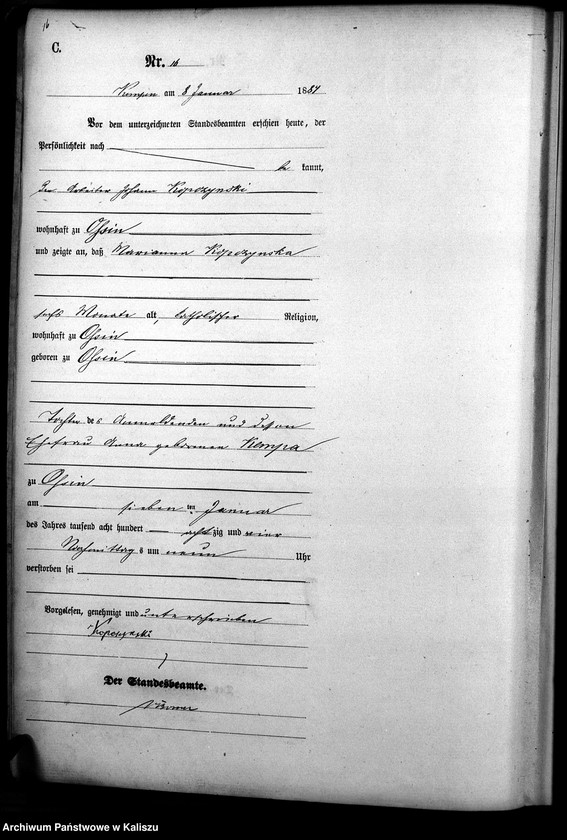 16
C.
Nr. 16
Kempen am 8 Januar 1884
Vor dem unterzeichneten Standesbeamten erschien heute, der
Persönlichkeit nach
be kannt,
Der Arbeiter Johann Kopczynski
wohnhaft zu Ossin
und zeigte an, daß Marianna Kopczynska
sechs Monate alt, katholischer Religion,
wohnhaft zu Ossin
geboren zu Ossin
Tochter des Anmeldenden und dessen
Ehefrau Anna geborenen Kempa
zu Ossin
am sieben ten Januar
des Jahres tausend acht hundert achtzig und vier
Nachmittags um neun Uhr
verstorben sei
Vorgelesen, genehmigt und unterschrieben
Kopczynski
Der Standesbeamte.
Archiwum Państwowe w Kaliszu